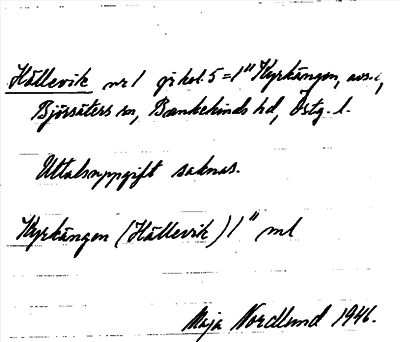 Hällevik nr 1 på kol. 5 = 1" Kyrkängen, avs. i,
Björsäters sn, Bankekinds hd, Östg. l.
Uttalsuppgift saknas.
Kyrkängen (Hällevik) 1" ml
Maja Nordlund 1946.